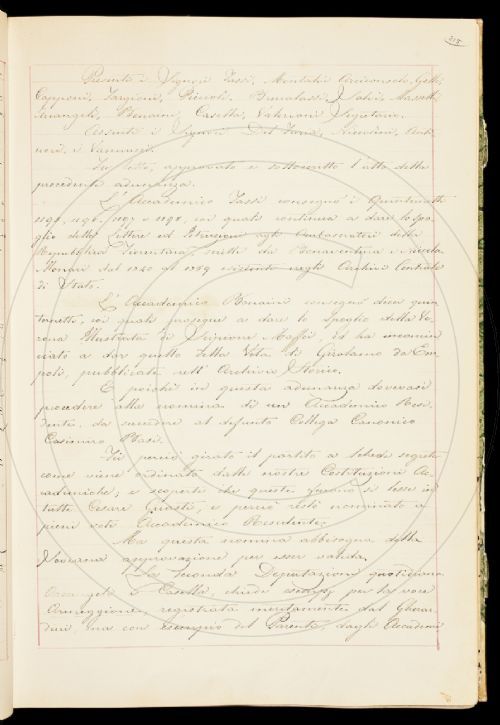 215
Presenti i Signori Tassi,
Capponi, Targioni, Piccioli, Bencini, Casella, Valeriani Segretario.
Assenti i Signori Del Furia,
nori, e Vannucci.
Fu letto, approvato e sottoscritto l'atto della
precedente adunanza.
L'Accademico Tassi consegnò i Quintinetti
1195, 1196, 1197 e 1198, coi quali continua a dare lo Spo-
glio delle Lettere ed Istruzioni agli Ambasciatori della
Repubblica Fiorentina, scritte da Bonaventura e Nicola
Monaci dal 1340 al esistente negli Archivi Centrale
di Stato.
L'Accademico Bencini consegnò dieci quin-
ternetti, coi quali prosegue a dare lo Spoglio della Ve-
rona Illustrata di Scipione Maffei, ed ha incomin-
ciato a dar quello della Vita di Girolamo da Em-
poli, pubblicata nell'Archivio Storico.
E poichè in questa adunanza dovevasi
procedere alla nomina di un Accademico Resi-
dente, da succedere al defunto Collega Canonico
Casimiro Basi.
Fu perciò girato il partito a schede segrete
come viene ordinato dalle nostre Costituzioni Ac-
cademiche; e scoperto che queste furono si lesse in
tutte Cesare Guasti, e perciò restò nominato a
pieni voti Accademico Residente.
Ma questa nomina abbisogna della
Sovrana approvazione per esser valida.
La seconda Deputazione quotidiana
Arcangeli e Casella, chiede per la voce
Armeggione, registrata meritamente dal Gherar-
dini, ma con esempio del Parenti, dagli Accademi